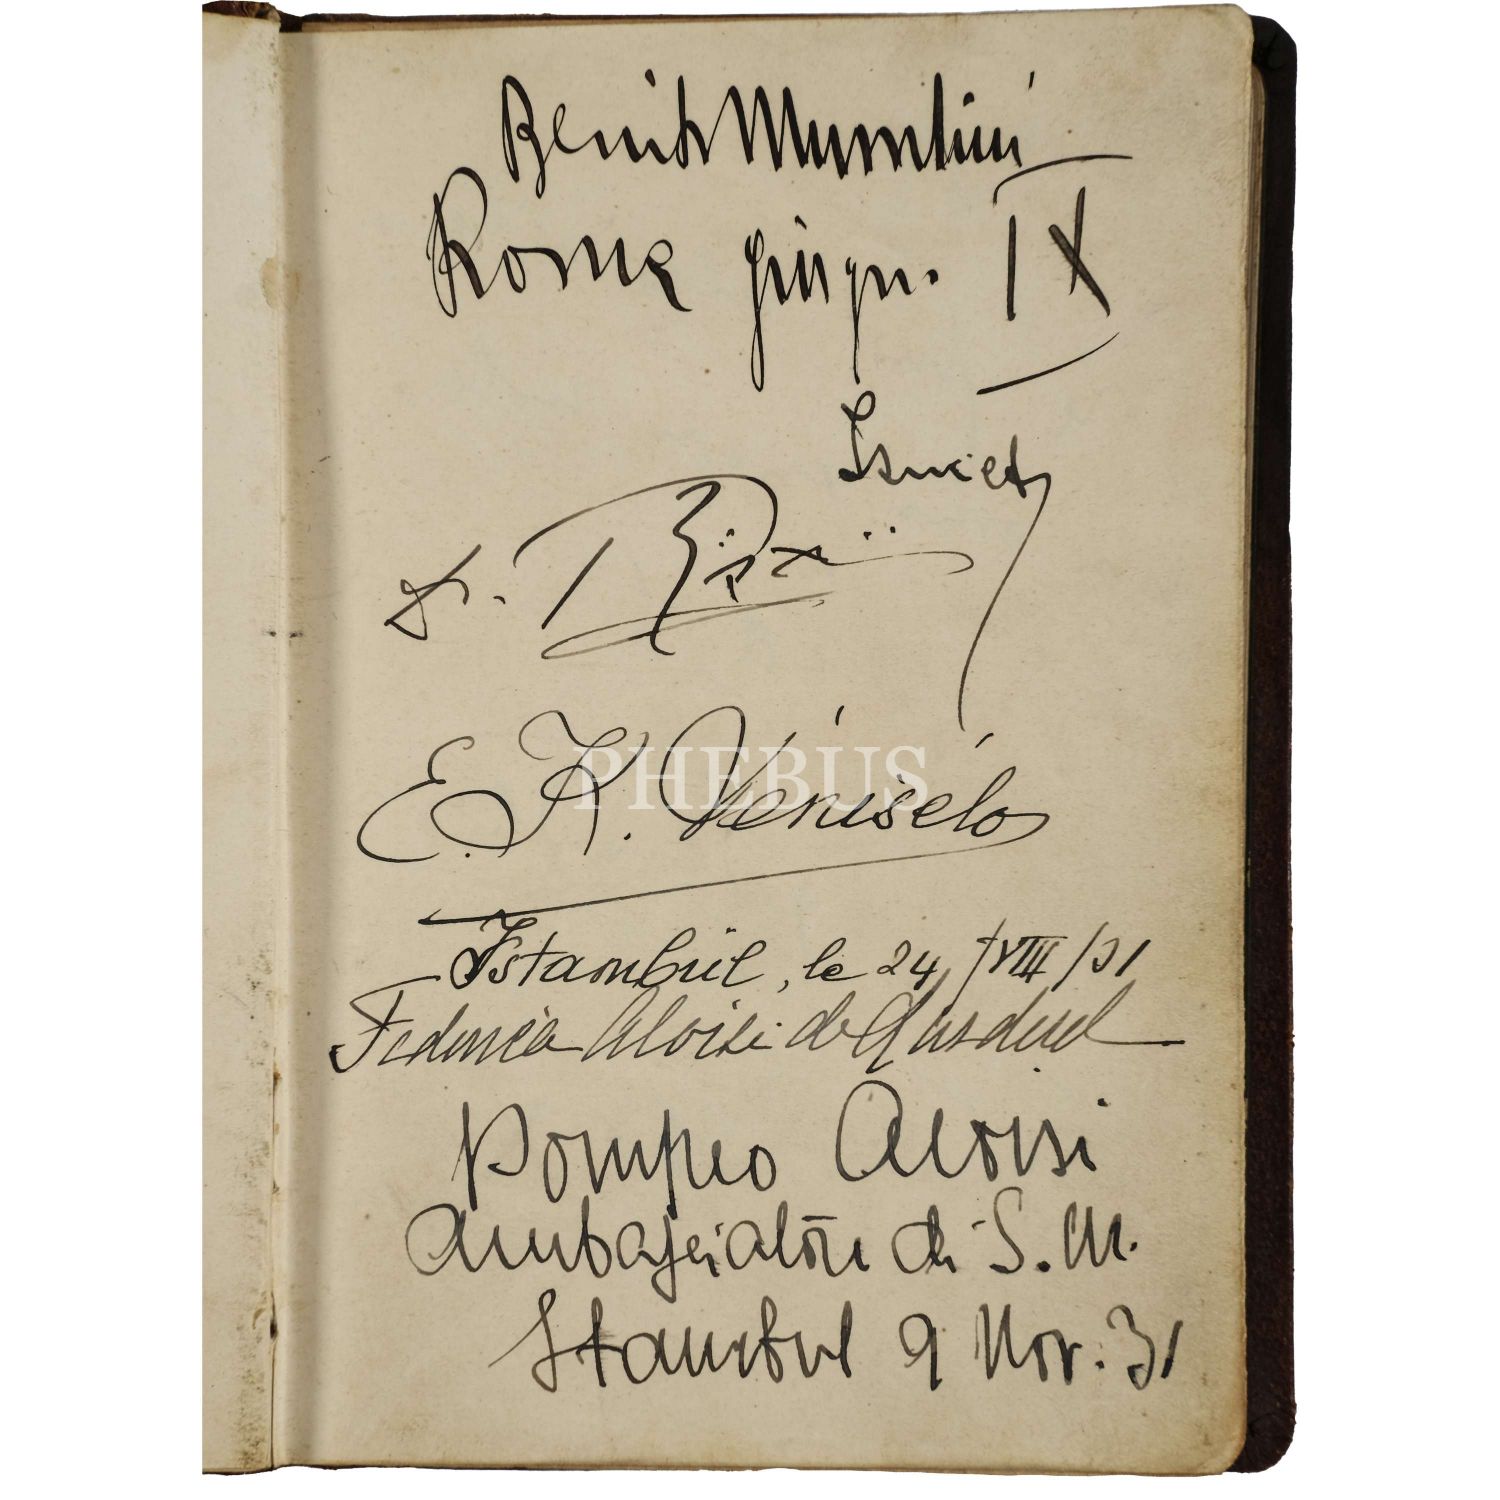 Benito Mussolini
Roma giugn. IX
Ismet
Dr. T. Rüştü
E. K. Véniselos
PHEBUS
Istambul, le 24/VIII/31
Federica Aloisi de
Pompeo Aloisi
Ambasciatore di S. M.
Stambul 9 Nov. 31